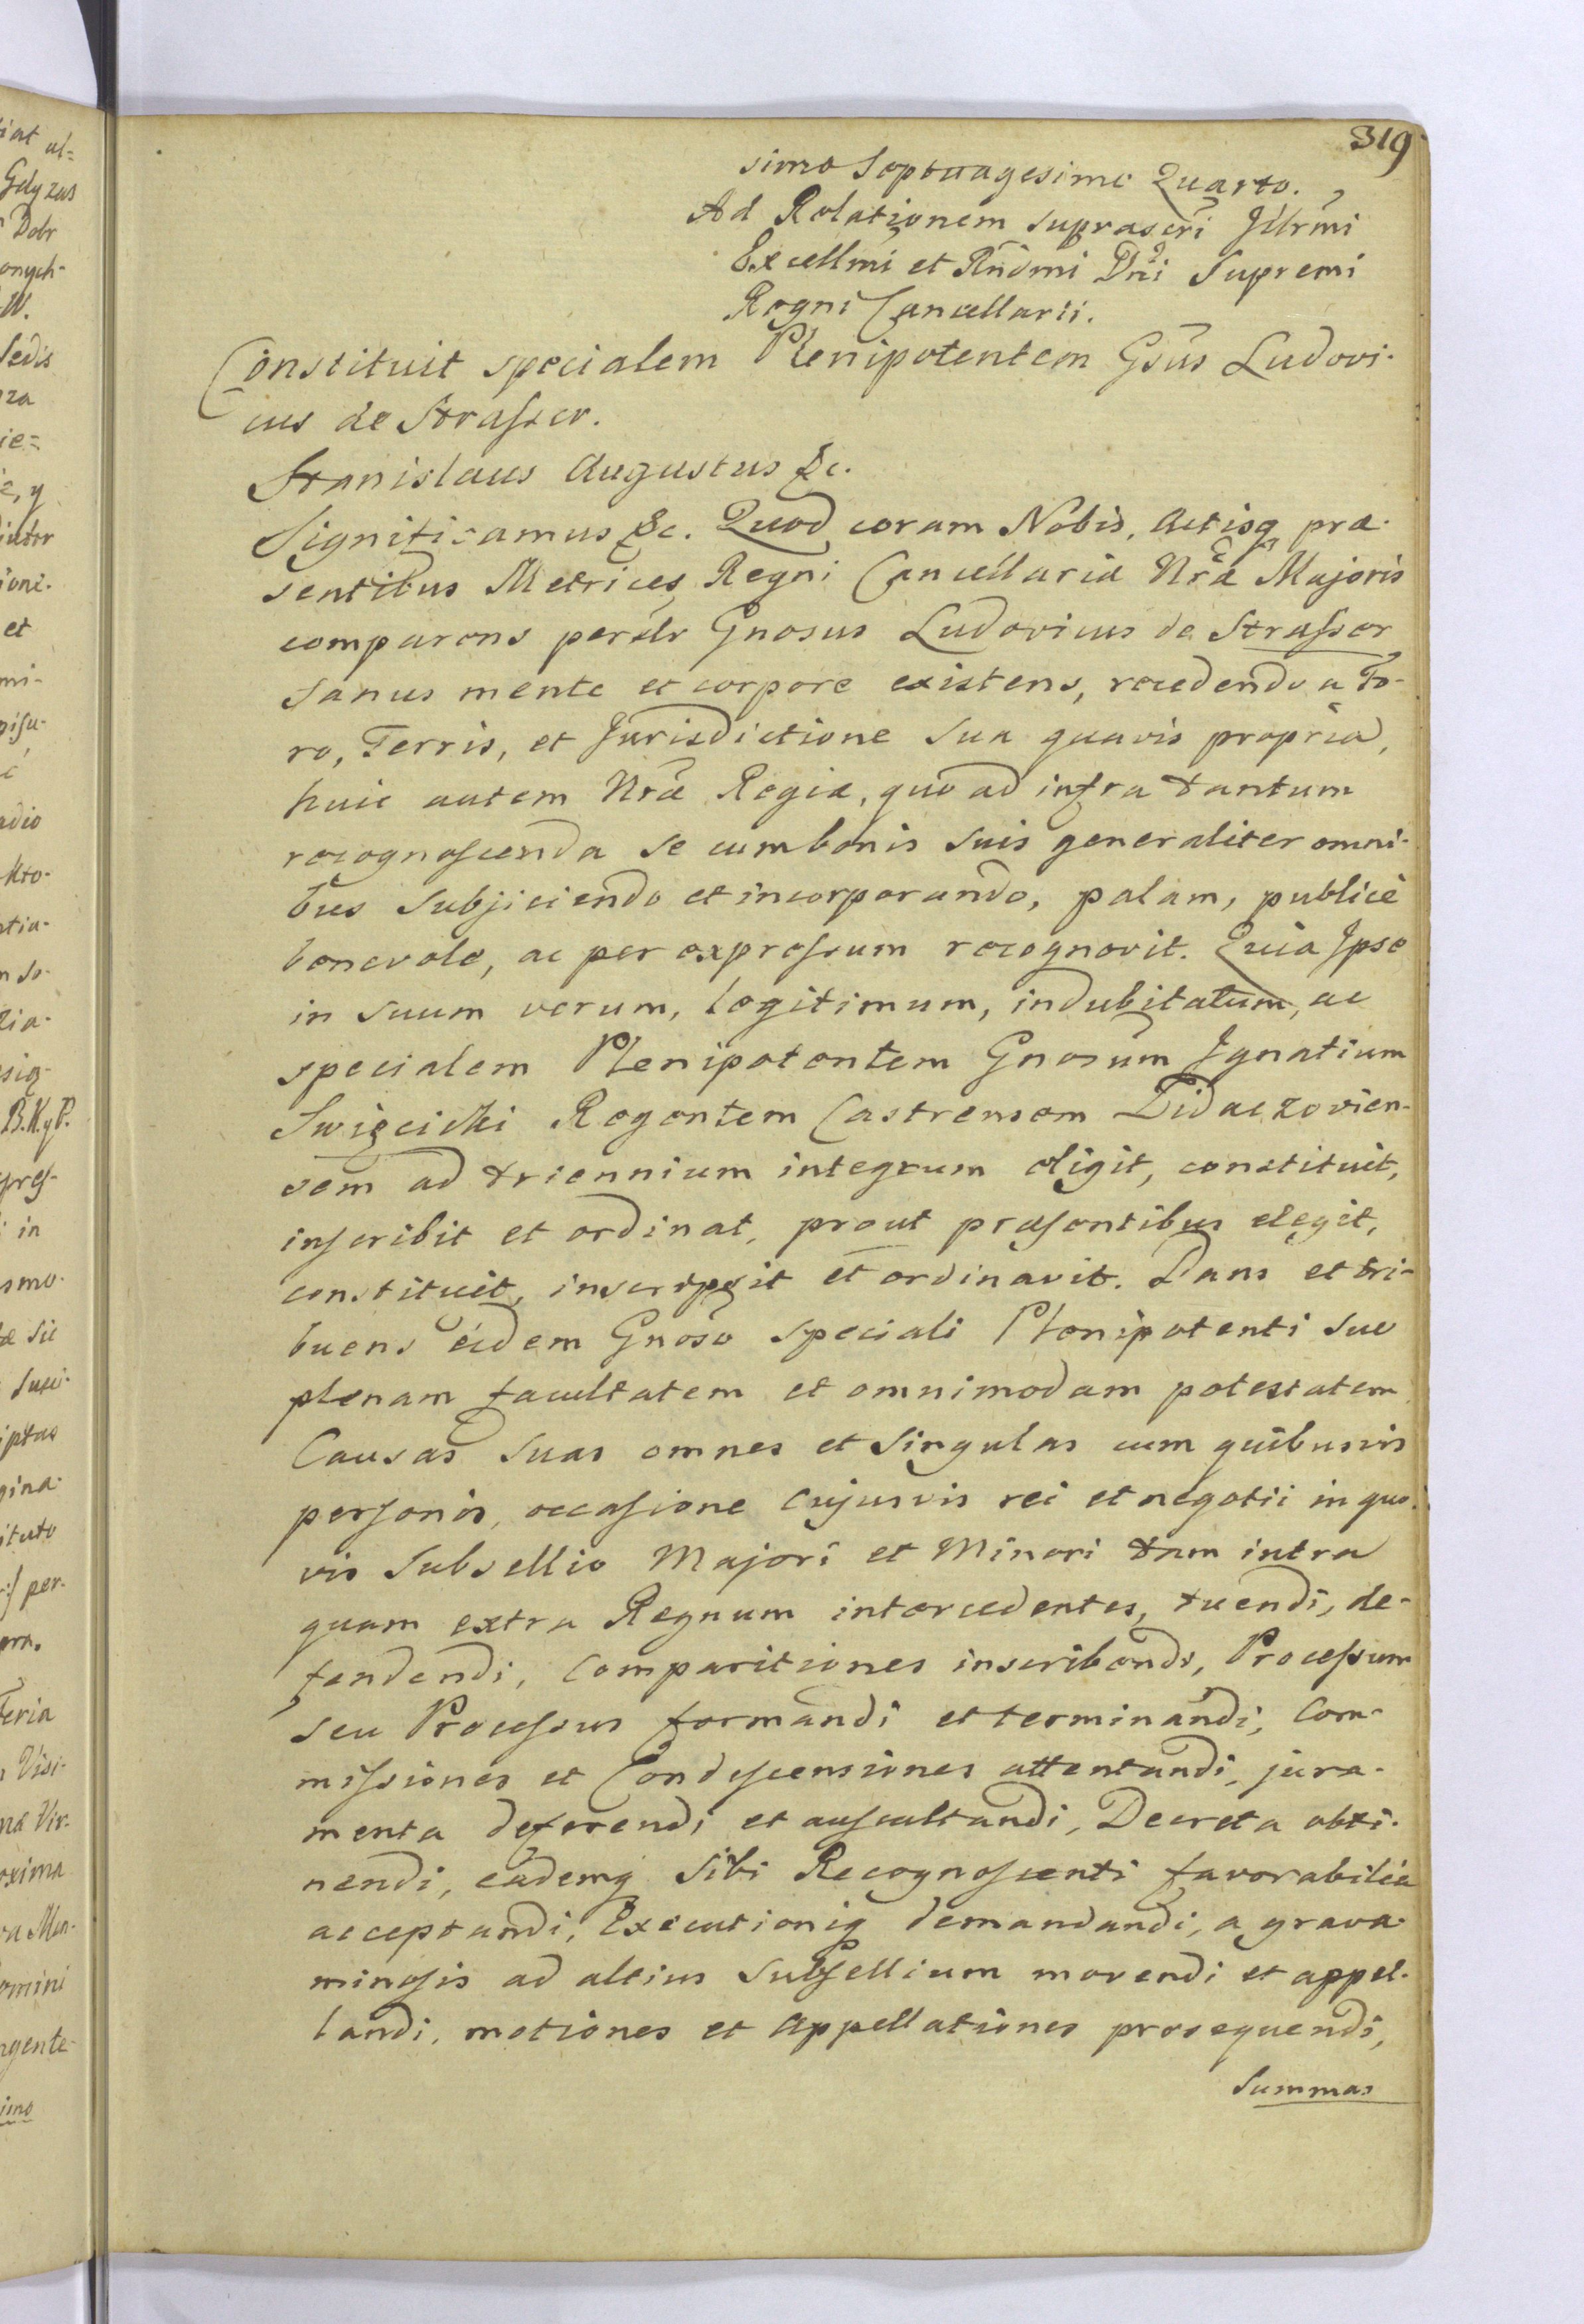 319
simo Septuagesimo Quarto.
Ad Relationem suprascri Illrmi
Excellmi et Rndmi Dni Supremi
Regni Cancellarii.
Constituit specialem Plenipotentem Gsus Ludovi-
cus de Strasser.
Stanislaus Augustus &c.
Significamus &c. Quod coram Nobis, Actisq præ-
sentibus Metrices Regni Cancellariæ Nræ Majoris
comparens perillr Gnosus Ludovicus de Strasser
sanus mente et corpore existens, recedendo a Fo-
ro, Terris, et Jurisdictione sua quavis propria,
huic autem Nræ Regiæ, quo ad infra tantum
recognoscenda se cum bonis suis generaliter omni-
bus subjiciendo et incorporando, palam, publicè
benevole, ac per expressum recognovit. Quia Ipse
in suum verum, legitimum, indubitatum, ac
specialem Plenipotentem Gnosum Ignatium
Swięcicki Regentem Castrensem Zidaczovien-
sem ad triennium integrum eligit, constituit,
inscribit et ordinat, prout præsentibus elegit,
constituit, inscripsit et ordinavit. Dans et tri-
buens eidem Gnoso speciali Plenipotenti suo
plenam facultatem et omnimodam potestatem
Causas suas omnes et singulas cum quibusvis
personis, occasione cujusvis rei et negotii in quo-
vis Subsellio Majori et Minori tam intra
quam extra Regnum intercedentes, tuendi, de-
fendendi, Comparitiones inscribendi, Processum
seu Processus formandi et terminandi, Com-
missiones et Condescensiones attentandi, jura-
menta deferendi et auscultandi, Decreta obti-
nendi, eademq Sibi Recognoscenti favorabilia
acceptandi, Executioniq demandandi, a grava-
minosis ad altius Subsellium movendi et appel-
landi, motiones et Appellationes prosequendi,
Summas